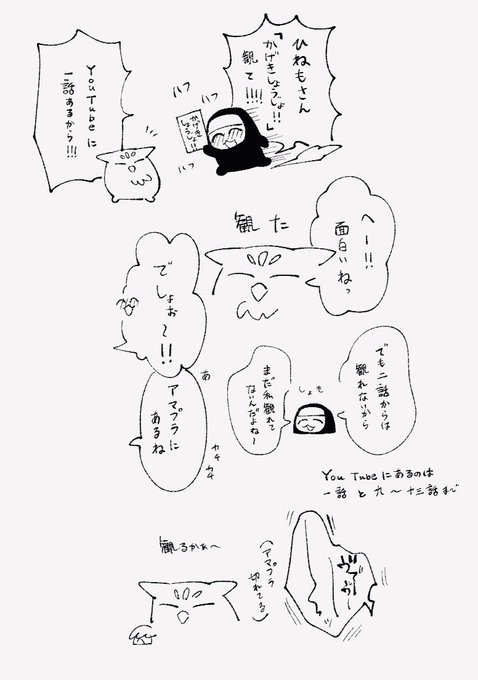 ひねもさん
「かげきしょうじょ!!」
観て!!!!
ハフ
ハフ
ハフ
かげき
しょうじょ!!
YouTubeに
一話あるから!!!
観た
へー!!
面白いねっ
でしょぉ〜!!
でも二話からは
観れないから
まだ私観れて
ないんだよね〜
しょも
あ
アマプラに
あるね
カチ
カチ
YouTubeにあるのは
一話と九〜十三話まで
観るかぁ〜
(アマプラ
切れてる)